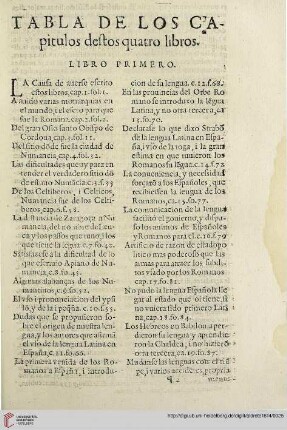 TABLA DE LOS CA-
pitulos destos quatro libros.
LIBRO PRIMERO.
LA Causa de auerse escrito
estos libros, cap.1.fol.1.
A auido varias monarquias en
el mundo, i el cetro para que
fue la Romana, cap.2.fol.
Del gran Osio santo Obispo de
Cordoua, cap.3.fol.11.
Del sitio dõde fue la ciudad de
Numancia, cap.4.fol.32.
Las dificultades que ay para en
tender el verdadero sitio dõ
de estuuo Numãcia. c.5.f.35
De los Celtiberos, i
Numancia fue de los Celti-
beros, cap.6.f.38.
La distancia de Zaragoza a Nu-
mancia,
que tiene la legua. c.7.fo.42.
Satisfaze a la dificultad de lo
que escriuio Apiano de Nu-
mancia, c.8.fo.45.
Algunas alabanças de los Nu-
mantinos, c.9.fo.52.
El vso i pronunciacion del ypsi
lõ, y de la i peq̃ña. c.10.fo.55.
Dudas que se propusieron so-
bre el origen de nuestra len-
gua, y los autores que auia
en la lengua Latina en
España, c.11.fo.60.
La primera venida de los Ro-
manos a España, i introdu-
cion de su lengua. c.12.f.68.
En las prouincias del Orbe Ro
mano se introduxo la lẽgua
Latina, y no otra tercera, c.
13.fo.70.
Declarase lo que dixo Strabõ
de la lengua Latina en Espa-
ña, i vso de la toga, i la gran
estima en que tuuieron los
Romanos su lẽgua. 14.f.72
La conueniencia, y necesidad
forçosa a los Españoles, que
recibiesen la lengua de los
Romanos, ca.15.fo.77.
La comunicacion de la lengua
facilita el gouierno, y dispu-
so los animos de Españoles
y Romanos para el. c.16.f.79
Artificio de razon de estado po
litico mas poderoso que las
armas para atraer los subdi-
tos vsado por los Romanos
cap.17.fo.81.
No pude la lengua Española lle
gar al estado que oi tiene, si
no vuiera sido primero Lati
na, cap.18.fo.84.
Los Hebreos en Babilonia per-
dieron su lengua y aprendie-
ron la Chaldea, i no hizierõ
otra tercera, ca.19.fo.87.
Mezclada vna lengua con otra,
i varios acentos, propria